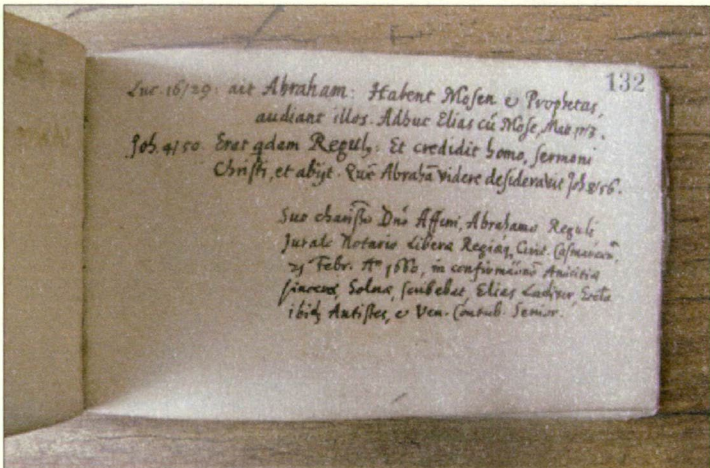 132
Luc. 16/29: ait Abraham: Habent Mosen & Prophetas,
audiant illos. Adhuc Elias cũ Mose, Mat. 17/3.
Joh. 4/50 Erat qdam Regulꝰ: Et credidit homo, sermoni
Christi, et abijt. Quẽ Abrahã videre desideravit Joh 8/56.
Suo Dnõ Affini, Abrahamo Reguli
Jurato Notario Liberæ Regiæq; Civit.
Febr. Aº 1660, in Amicitiæ
sinceræ, Solnæ, scribebat, Elias Ladiver, Eccla
ibid; Antistes, & Ven. Contub. Senior.